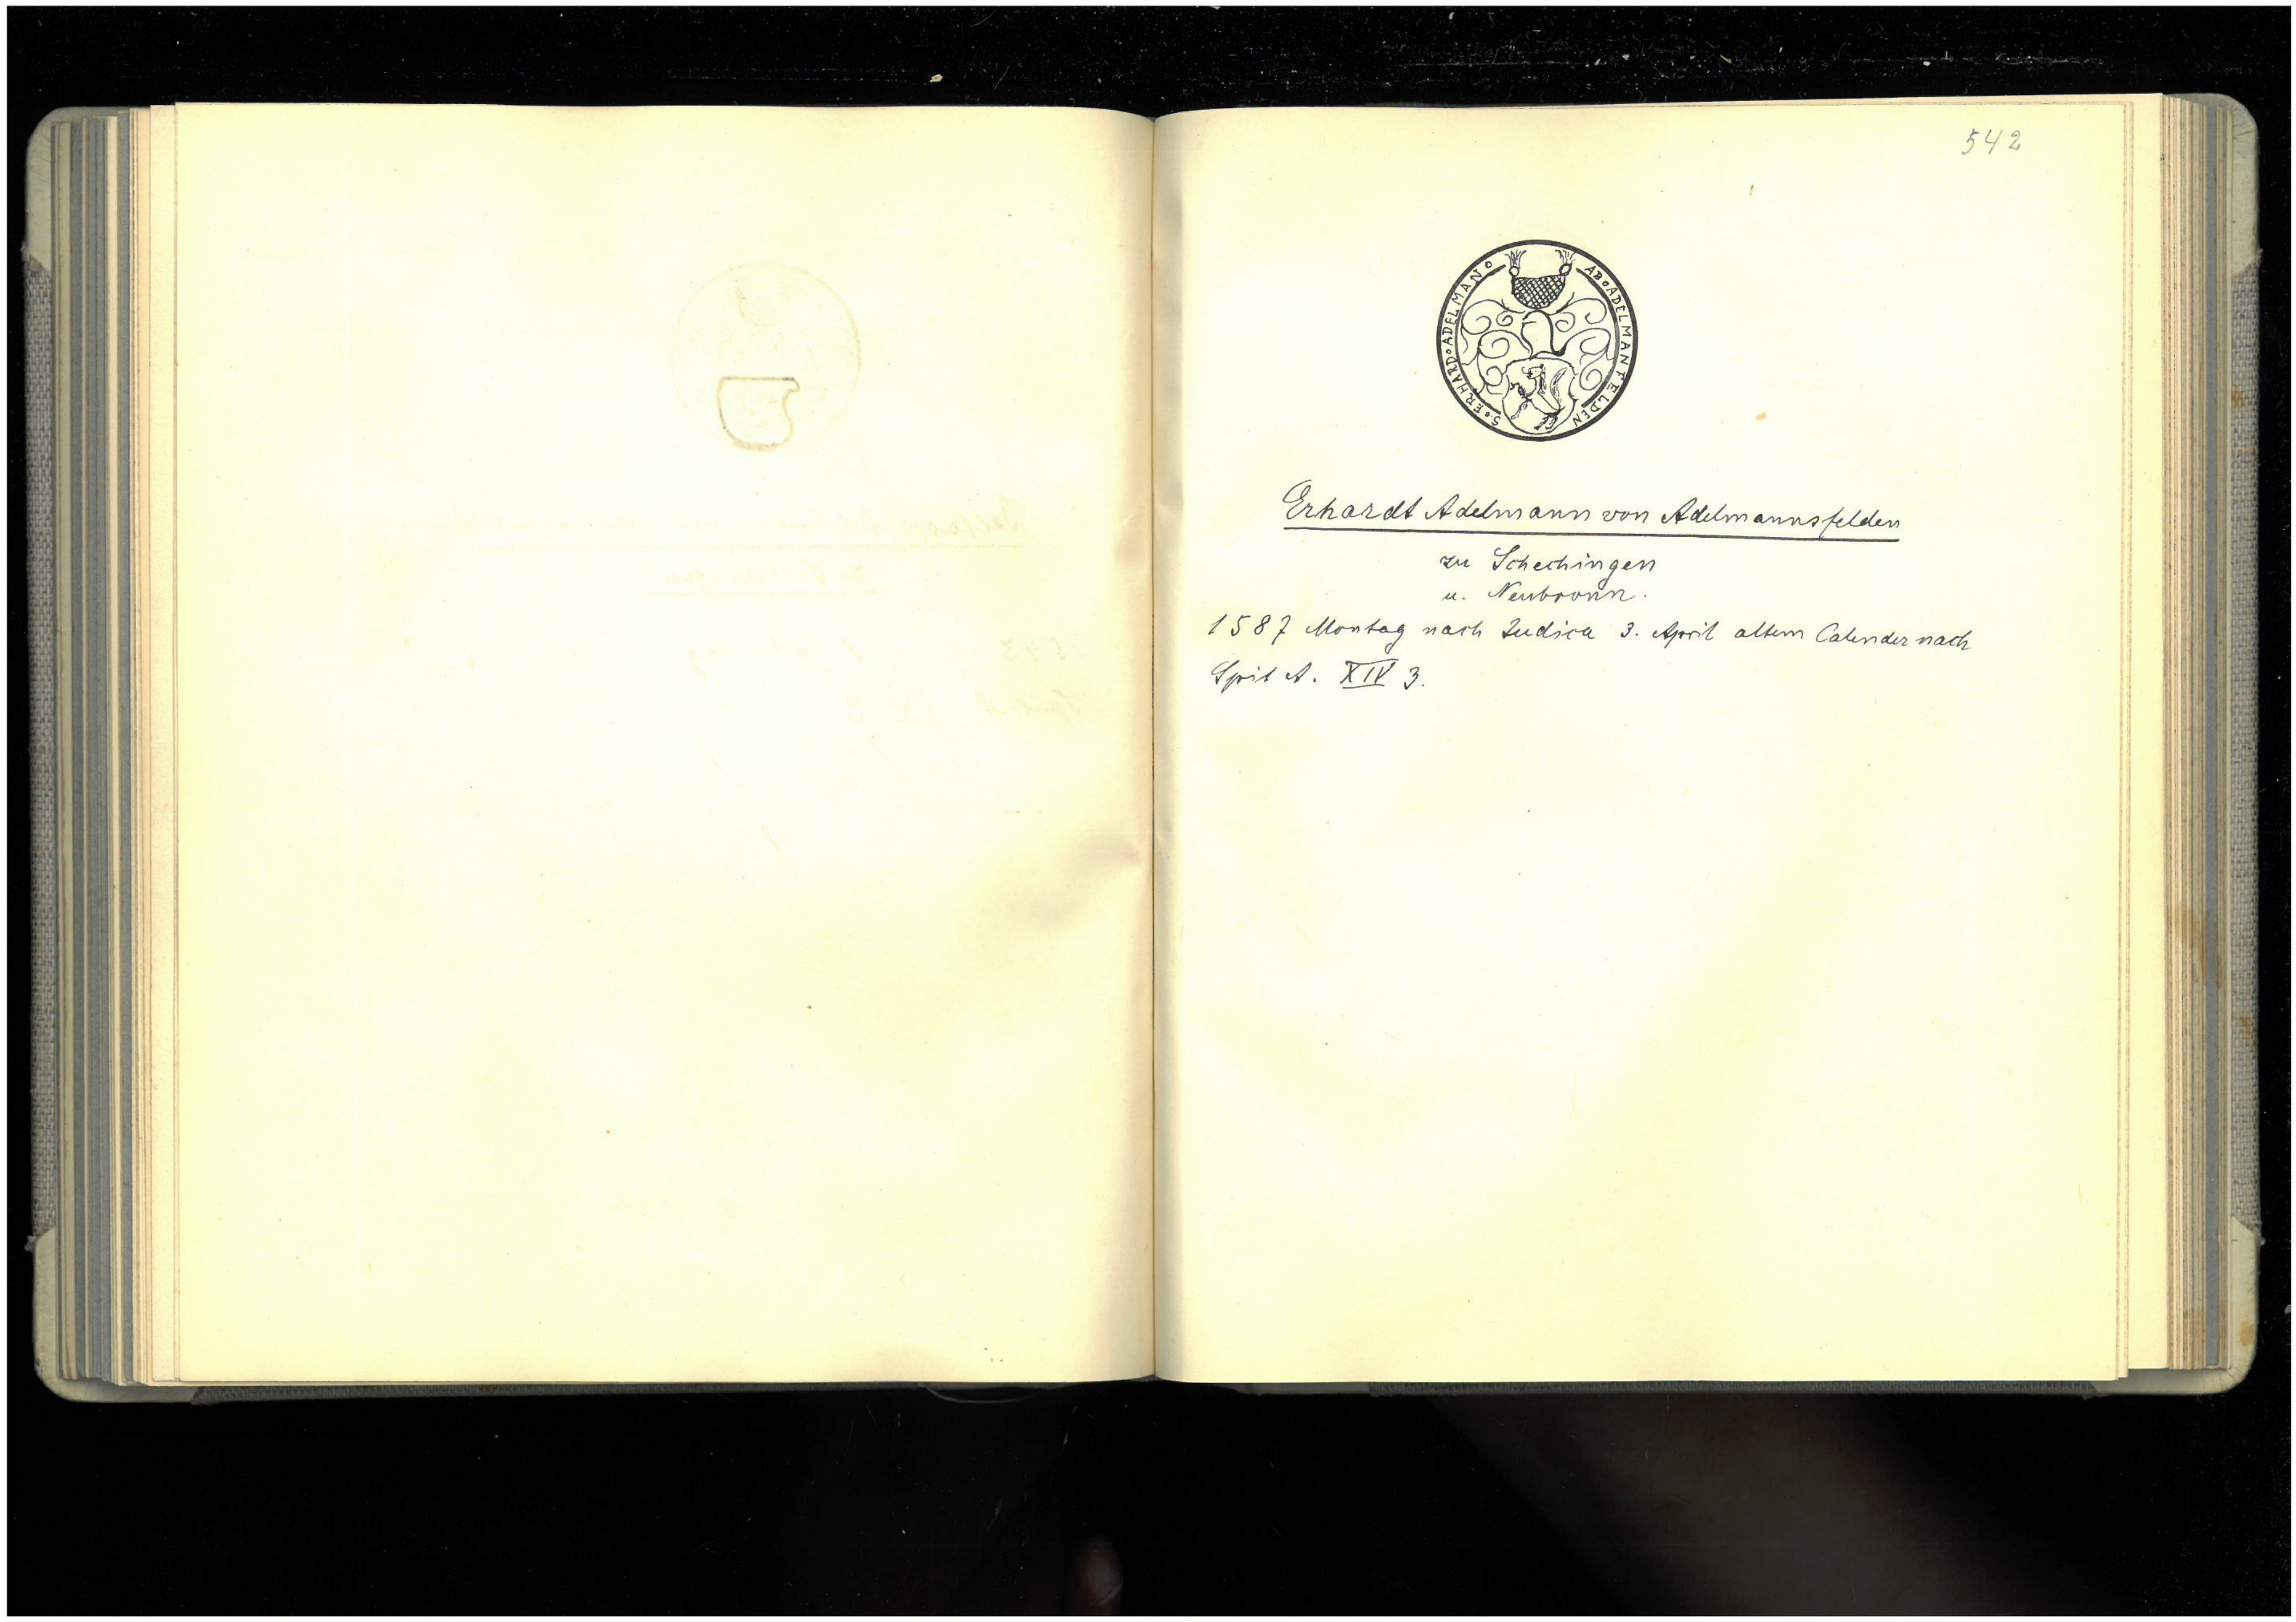 542
S∘ERHARD∘ADELMAN∘ AB∘ADELMANFELDEN
Erhardt Adelmann von Adelmannsfelden
zu Schechingen
u. Neubronn.
1587 Montag nach Judica 3. April altem Calender nach
Spit A. XIV 3.